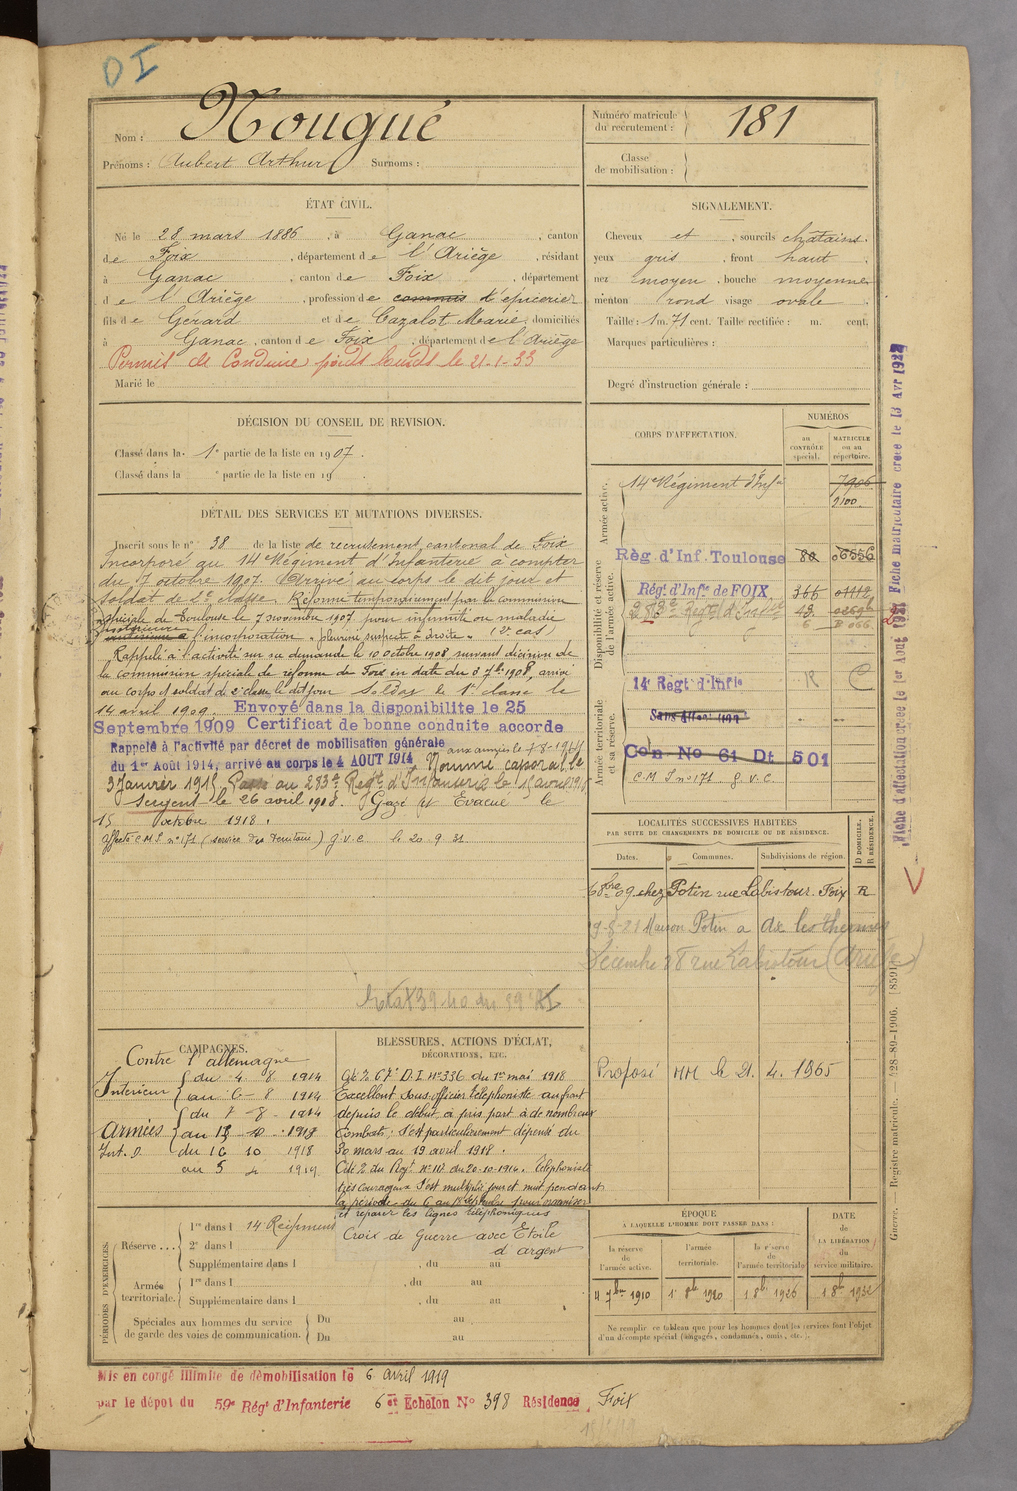 D I
Nom : Nougué
Prénoms : Aubert Arthur Surnoms :
Numéro matricule
du recrutement : 181
Classe
de mobilisation :
ÉTAT CIVIL.
Né le 28 mars 1886, à Ganac, canton
de Foix, département de l'Ariège, résidant
à Ganac, canton de Foix, département
de l'Ariège, profession de commis d'épicerier
fils de Gérard et de Cazalot Marie, domiciliés
à Ganac, canton de Foix, département de l'Ariège
Permis de Conduire poids lourds le 21-1-33
Marié le
SIGNALEMENT.
Cheveux et, sourcils chatains.
yeux gris, front haut,
nez moyen, bouche moyenne
menton rond visage ovale.
Taille : 1 m. 71 cent. Taille rectifiée : m. cent.
Marques particulières :
Degré d'instruction générale :
DÉCISION DU CONSEIL DE REVISION.
Classé dans la 1e partie de la liste en 1907.
Classé dans la e partie de la liste en 19
DÉTAIL DES SERVICES ET MUTATIONS DIVERSES.
Inscrit sous le n° 38 de la liste de recrutement cantonal de Foix
Incorporé au 14e Régiment d'Infanterie à compter
du 7 octobre 1907. Arrivé au corps le dit jour et
soldat de 2e classe. Réformé temporairement par la commission
spéciale de Toulouse le 7 novembre 1907 pour infirmité ou maladie
antérieure à l'incorporation "pleurésie suspecte à droite" (2e cas)
Rappelé à l'activité sur sa demande le 10 octobre 1908 suivant décision de
la commission spéciale de réforme de Foix en date du 8 7bre 1908, arrivé
au corps et soldat de 2e classe le dit jour Soldat de 1e classe le
14 avril 1909. Envoyé dans la disponibilite le 25
Septembre 1909 Certificat de bonne conduite accorde
Rappelé à l'activité par décret de mobilisation générale
du 1er Août 1914, arrivé au corps le 4 AOUT 1914 Nommé caporal le
3 Janvier 1915. Passé au 283e Regt d'Infanterie le
Sergent le 26 avril 1918. Gazé et Evacué le
15 octobre 1918.
Affecté C.M.I. n° 171 (service des territoriaux) g.v.c le 20.9.31.
CORPS D'AFFECTATION.
NUMÉROS
au
CONTRÔLE
spécial.
MATRICULE
ou au
répertoire.
Armée active.
14e Régiment d'Infie
7906
9100
Disponibilité et réserve
de l'armée active.
Règ. d'Inf. Toulouse 80 06556
Régt. d'Infie de FOIX 366 01112
283e Regt d'Infie
Armée territoriale
et sa réserve.
14e Régt d'Infie R C
Sans affon
Con No 61 Dt 501
C.M I n° 171 g.v.c.
Fiche d'affectation créée le 1er Aout 1921 Fiche matriculaire créée le 13 Avr 1927
LOCALITÉS SUCCESSIVES HABITÉES
PAR SUITE DE CHANGEMENTS DE DOMICILE OU DE RÉSIDENCE.
Dates. Communes. Subdivisions de région. D DOMICILE. R RÉSIDENCE.
chez Potin rue Labistour. Foix R
9-8-21 Maison Potin a Ax les thermes
Décembre 28 rue Labistour (Ariège)
Proposé MM le 21. 4. 1965
CAMPAGNES.
Contre l'allemagne
Intérieur du 4 8 1914
au 6 8 1914
Armées du 7 8 1914
au 15 10 1918
Int. D du 16 10 1918
au 5 4 1919.
BLESSURES, ACTIONS D'ÉCLAT,
DÉCORATIONS, ETC.
Cité à 67e D.I n° 336 du 1er mai 1918
Excellent sous-officier téléphoniste au front
depuis le début, a pris part à de nombreux
combats, s'est particulièrement dépensé du
30 mars au 19 avril 1918.
Cité à du Regt n° 117 du 20-10-1914. Téléphoniste
très courageux s'est multiplié jour et nuit pendant
la période du 6 au Septembre pour organiser
et réparer les lignes téléphoniques
Croix de Guerre avec Etoile
d'argent
PÉRIODES D'EXERCICES.
Réserve... 1re dans l 14e Régiment
2e dans l
Supplémentaire dans l , du au
Armée
territoriale. 1re dans l , du au
Supplémentaire dans l , du au
Spéciales aux hommes du service
de garde des voies de communication. Du au
Du au
ÉPOQUE
A LAQUELLE L'HOMME DOIT PASSER DANS :
la réserve
de
l'armée active.
l'armée
territoriale.
la réserve
de
l'armée territoriale
DATE
de
LA LIBÉRATION
du
service militaire.
1 8bre 1920 1 8bre 1926 1 8bre 1932
Ne remplir ce tableau que pour les hommes dont les services font l'objet
d'un décompte spécial (engagés, condamnés, omis, etc.).
Guerre. — Registre matricule. — 28-80-1906. [8591]
Mis en congé illimité de démobilisation le 6 avril 1919
par le dépôt du 59e Régt d'Infanterie 6 et Echelon No 398 Résidence Foix